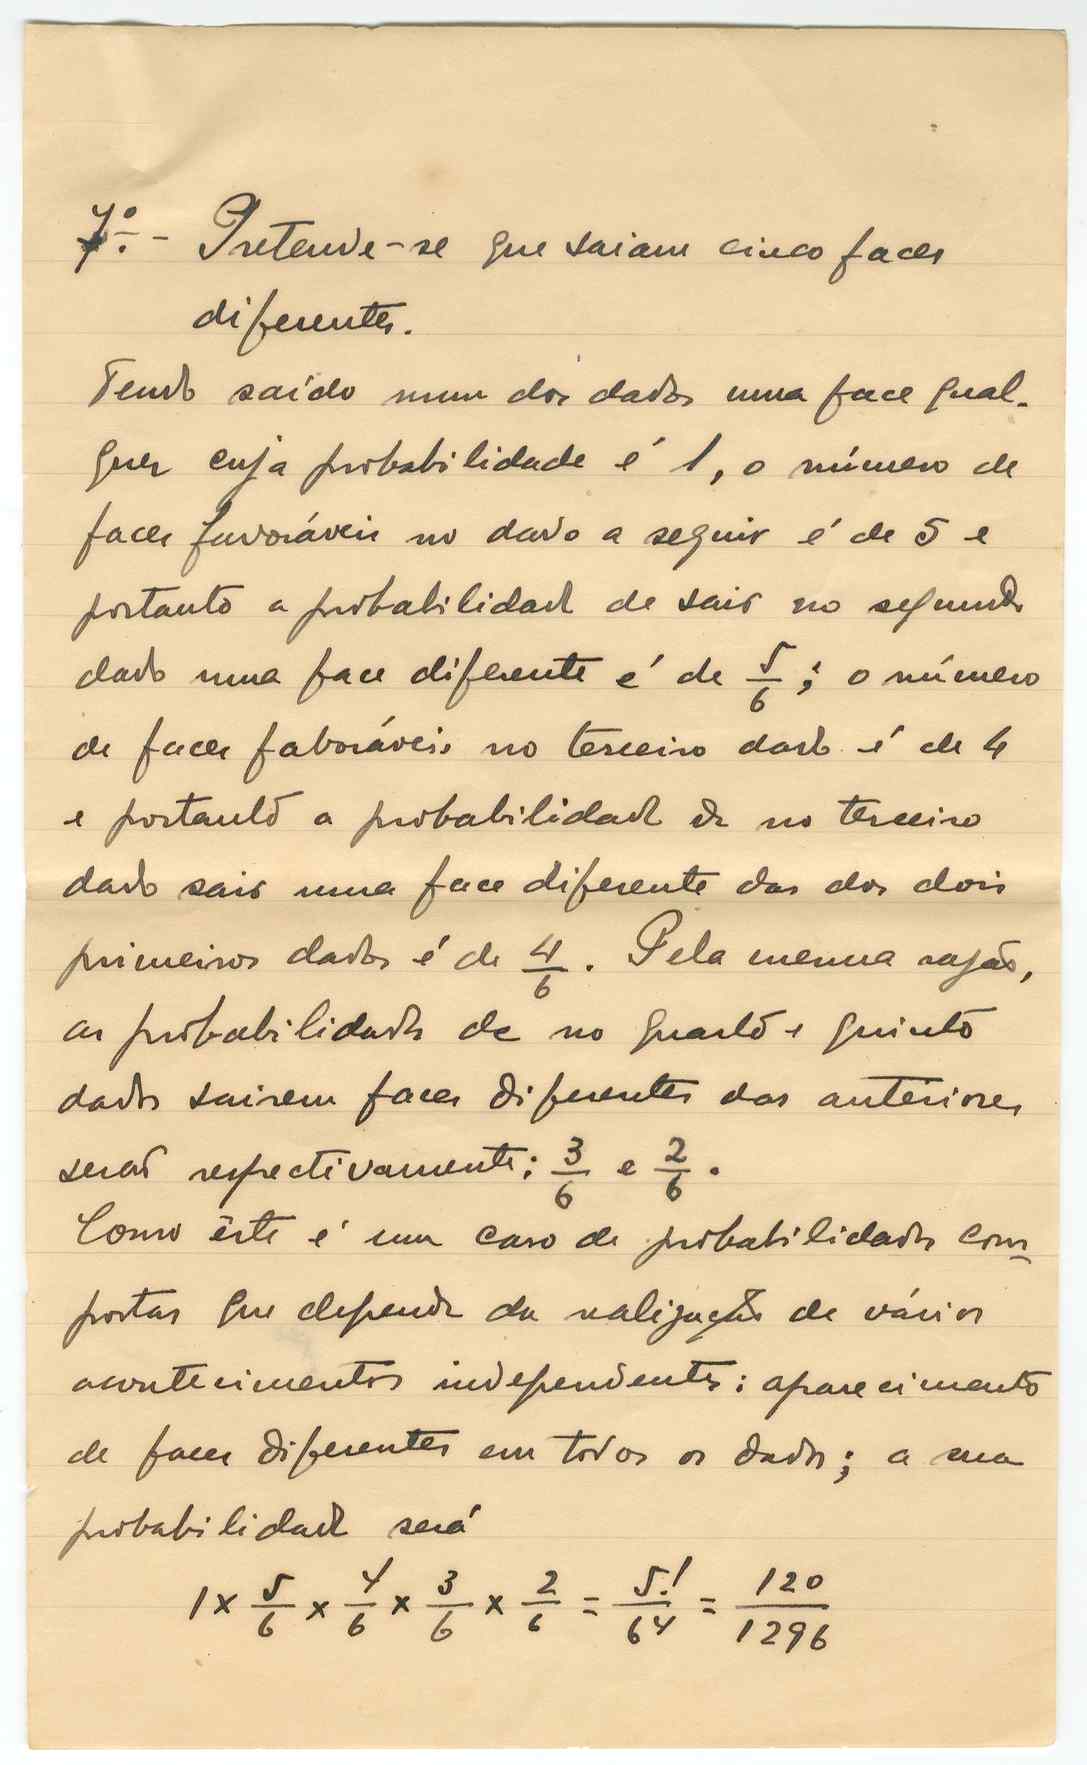 7º. - Pretende-se que saiam cinco faces
diferentes.
Tendo saído num dos dados uma face qual-
quer cuja probabilidade é 1, o número de
faces favoráveis no dado a seguir é de 5 e
portanto a probabilidade de sair no segundo
dado uma face diferente é de 5/6; o número
de faces faboráveis no terceiro dado é de 4
e portanto a probabilidade de no terceiro
dado sair uma face diferente das dos dois
primeiros dados é de 4/6. Pela mesma razão,
as probabilidades de no quarto e quinto
dados sairem faces diferentes das anteriores
serão respectivamente: 3/6 e 2/6.
Como êste é um caso de probabilidades com-
postas que depende da realização de vários
acontecimentos independentes: aparecimento
de faces diferentes em todos os dados; a sua
probabilidade será
1 × 5/6 × 4/6 × 3/6 × 2/6 = 5!/6⁴ = 120/1296